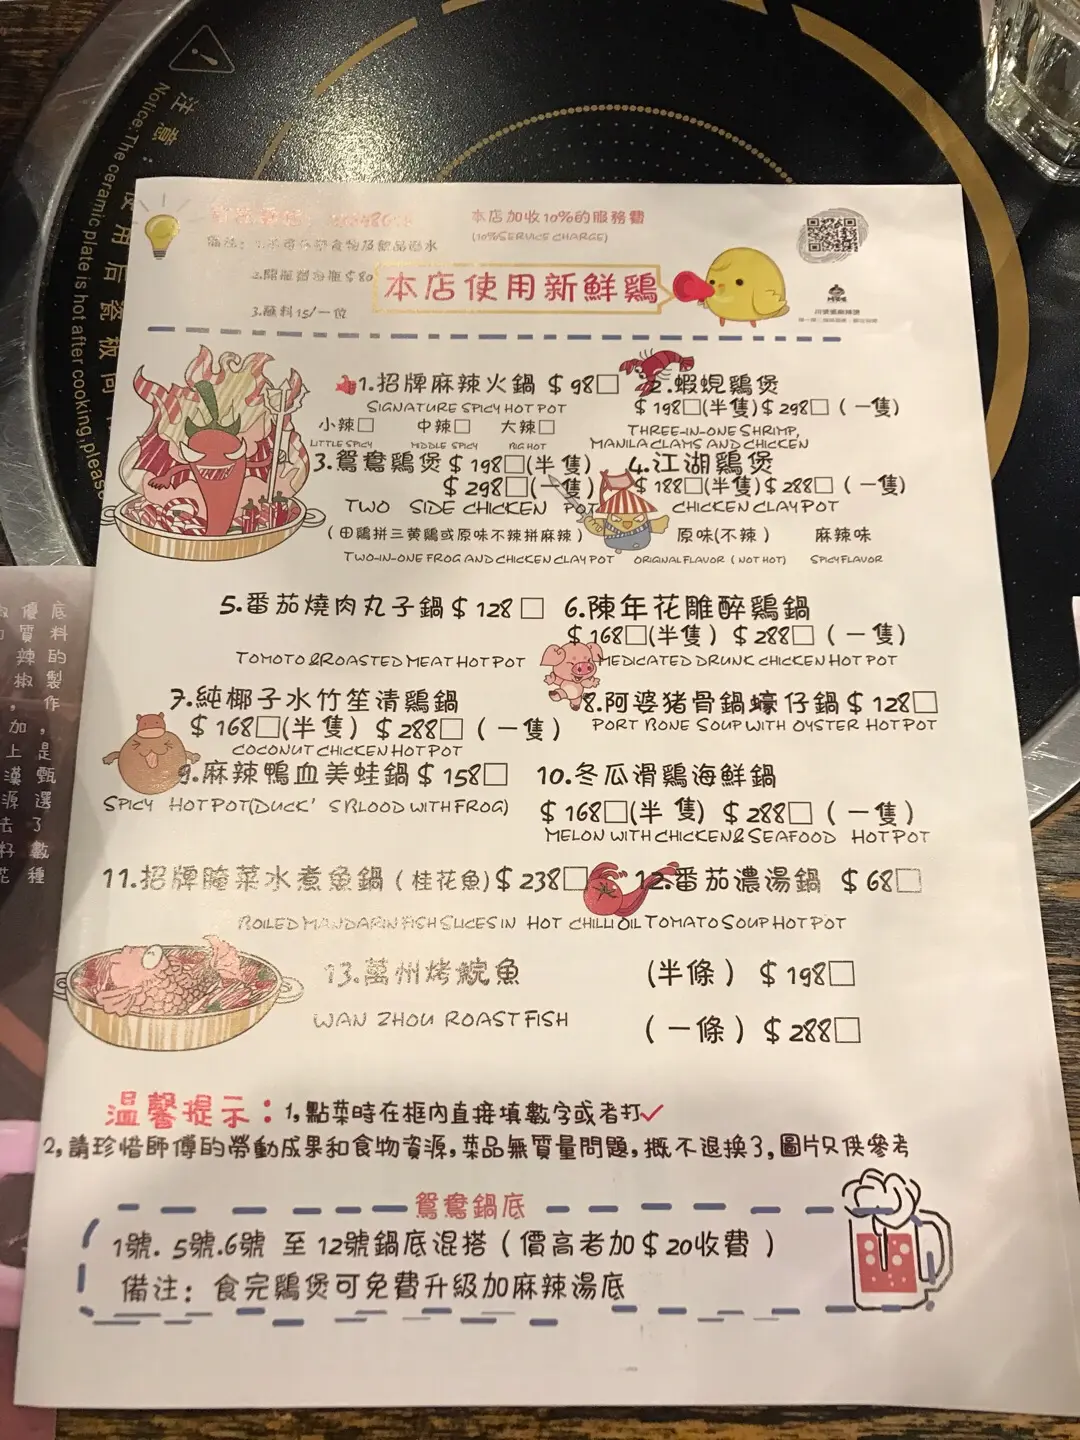 注意:
Notice:The ceramic plate is hot after cooking,please
使用后瓷板向
本店加收10%的服務費
(10%SERVICE CHARGE)
食物及飲品泡水
2.開瓶費每瓶$80
3.蘸料15/一位
本店使用新鮮鷄
1.招牌麻辣火鍋 $98□
SIGNATURE SPICY HOT POT
小辣□ 中辣□ 大辣□
LITTLE SPICY MIDDLE SPICY BIG HOT
2.蝦蜆鷄煲
$198□(半隻)$298□(一隻)
THREE-IN-ONE SHRIMP,
MANILA CLAMS AND CHICKEN
3.鴛鴦鷄煲$198□(半隻)
$298□(一隻)
TWO SIDE CHICKEN POT
(田鷄拼三黄鷄或原味不辣拼麻辣)
TWO-IN-ONE FROG AND CHICKEN CLAY POT
4.江湖鷄煲
$188□(半隻)$288□(一隻)
CHICKEN CLAY POT
原味(不辣) 麻辣味
ORIGINAL FLAVOR (NOT HOT) SPICY FLAVOR
5.番茄燒肉丸子鍋$128□
TOMOTO &ROASTED MEAT HOT POT
6.陳年花雕醉鷄鍋
$168□(半隻) $288□(一隻)
MEDICATED DRUNK CHICKEN HOT POT
7.純椰子水竹笙清鷄鍋
$168□(半隻) $288□(一隻)
COCONUT CHICKEN HOT POT
8.阿婆猪骨鍋蠔仔鍋$128□
PORT BONE SOUP WITH OYSTER HOT POT
9.麻辣鴨血美蛙鍋$158□
SPICY HOT POT(DUCK'S BLOOD WITH FROG)
10.冬瓜滑鷄海鮮鍋
$168□(半隻) $288□(一隻)
MELON WITH CHICKEN& SEAFOOD HOT POT
11.招牌腌菜水煮魚鍋(桂花魚)$238□
BOILED MANDARIN FISH SLICES IN HOT CHILLI OIL
12.番茄濃湯鍋 $68□
TOMATO SOUP HOT POT
13.萬州烤鯇魚 (半條) $198□
WAN ZHOU ROAST FISH (一條) $288□
温馨提示:1,點菜時在框内直接填數字或者打✓
2,請珍惜師傅的勞動成果和食物資源,菜品無質量問題,概不退換3,圖片只供參考
鴛鴦鍋底
1號.5號.6號 至 12號鍋底混搭(價高者加$20收費)
備注:食完鷄煲可免費升級加麻辣湯底